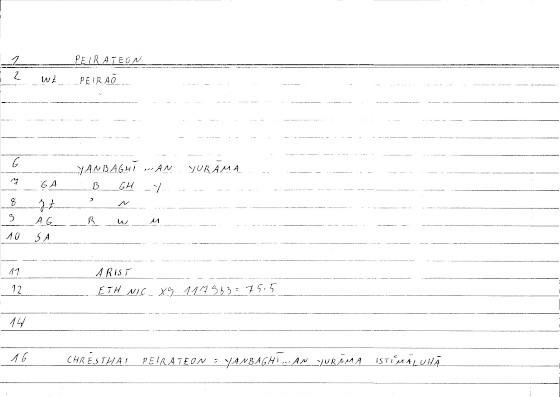 1 PEIRATEON
2 wt PEIRAŌ
6 YANBAGHĪ...AN YURĀMA
7 GA B GH Y
8 ʾ N
9 AG R W M
10 SA
11 ARIST
12 ETH NIC X9 1179b3 = 75.5
14
16 CHRĒSTHAI PEIRATEON = YANBAGHĪ...AN YURĀMA ISTIʿMĀLUHĀ